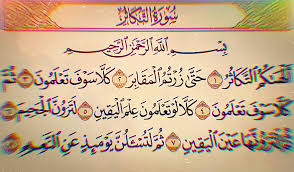 سُورَةُ التَّكَاثُرِ
بِسْمِ اللَّهِ الرَّحْمَٰنِ الرَّحِيمِ
أَلْهَىٰكُمُ التَّكَاثُرُ ١ حَتَّىٰ زُرْتُمُ الْمَقَابِرَ ٢ كَلَّا سَوْفَ تَعْلَمُونَ ٣ ثُمَّ
كَلَّا سَوْفَ تَعْلَمُونَ ٤ كَلَّا لَوْ تَعْلَمُونَ عِلْمَ الْيَقِينِ ٥ لَتَرَوُنَّ الْجَحِيمَ ٦
ثُمَّ لَتَرَوُنَّهَا عَيْنَ الْيَقِينِ ٧ ثُمَّ لَتُسْـَٔلُنَّ يَوْمَئِذٍ عَنِ النَّعِيمِ ٨